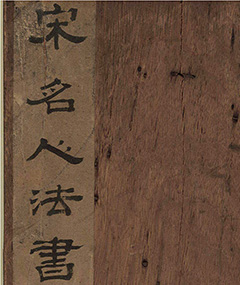 宋名人法書